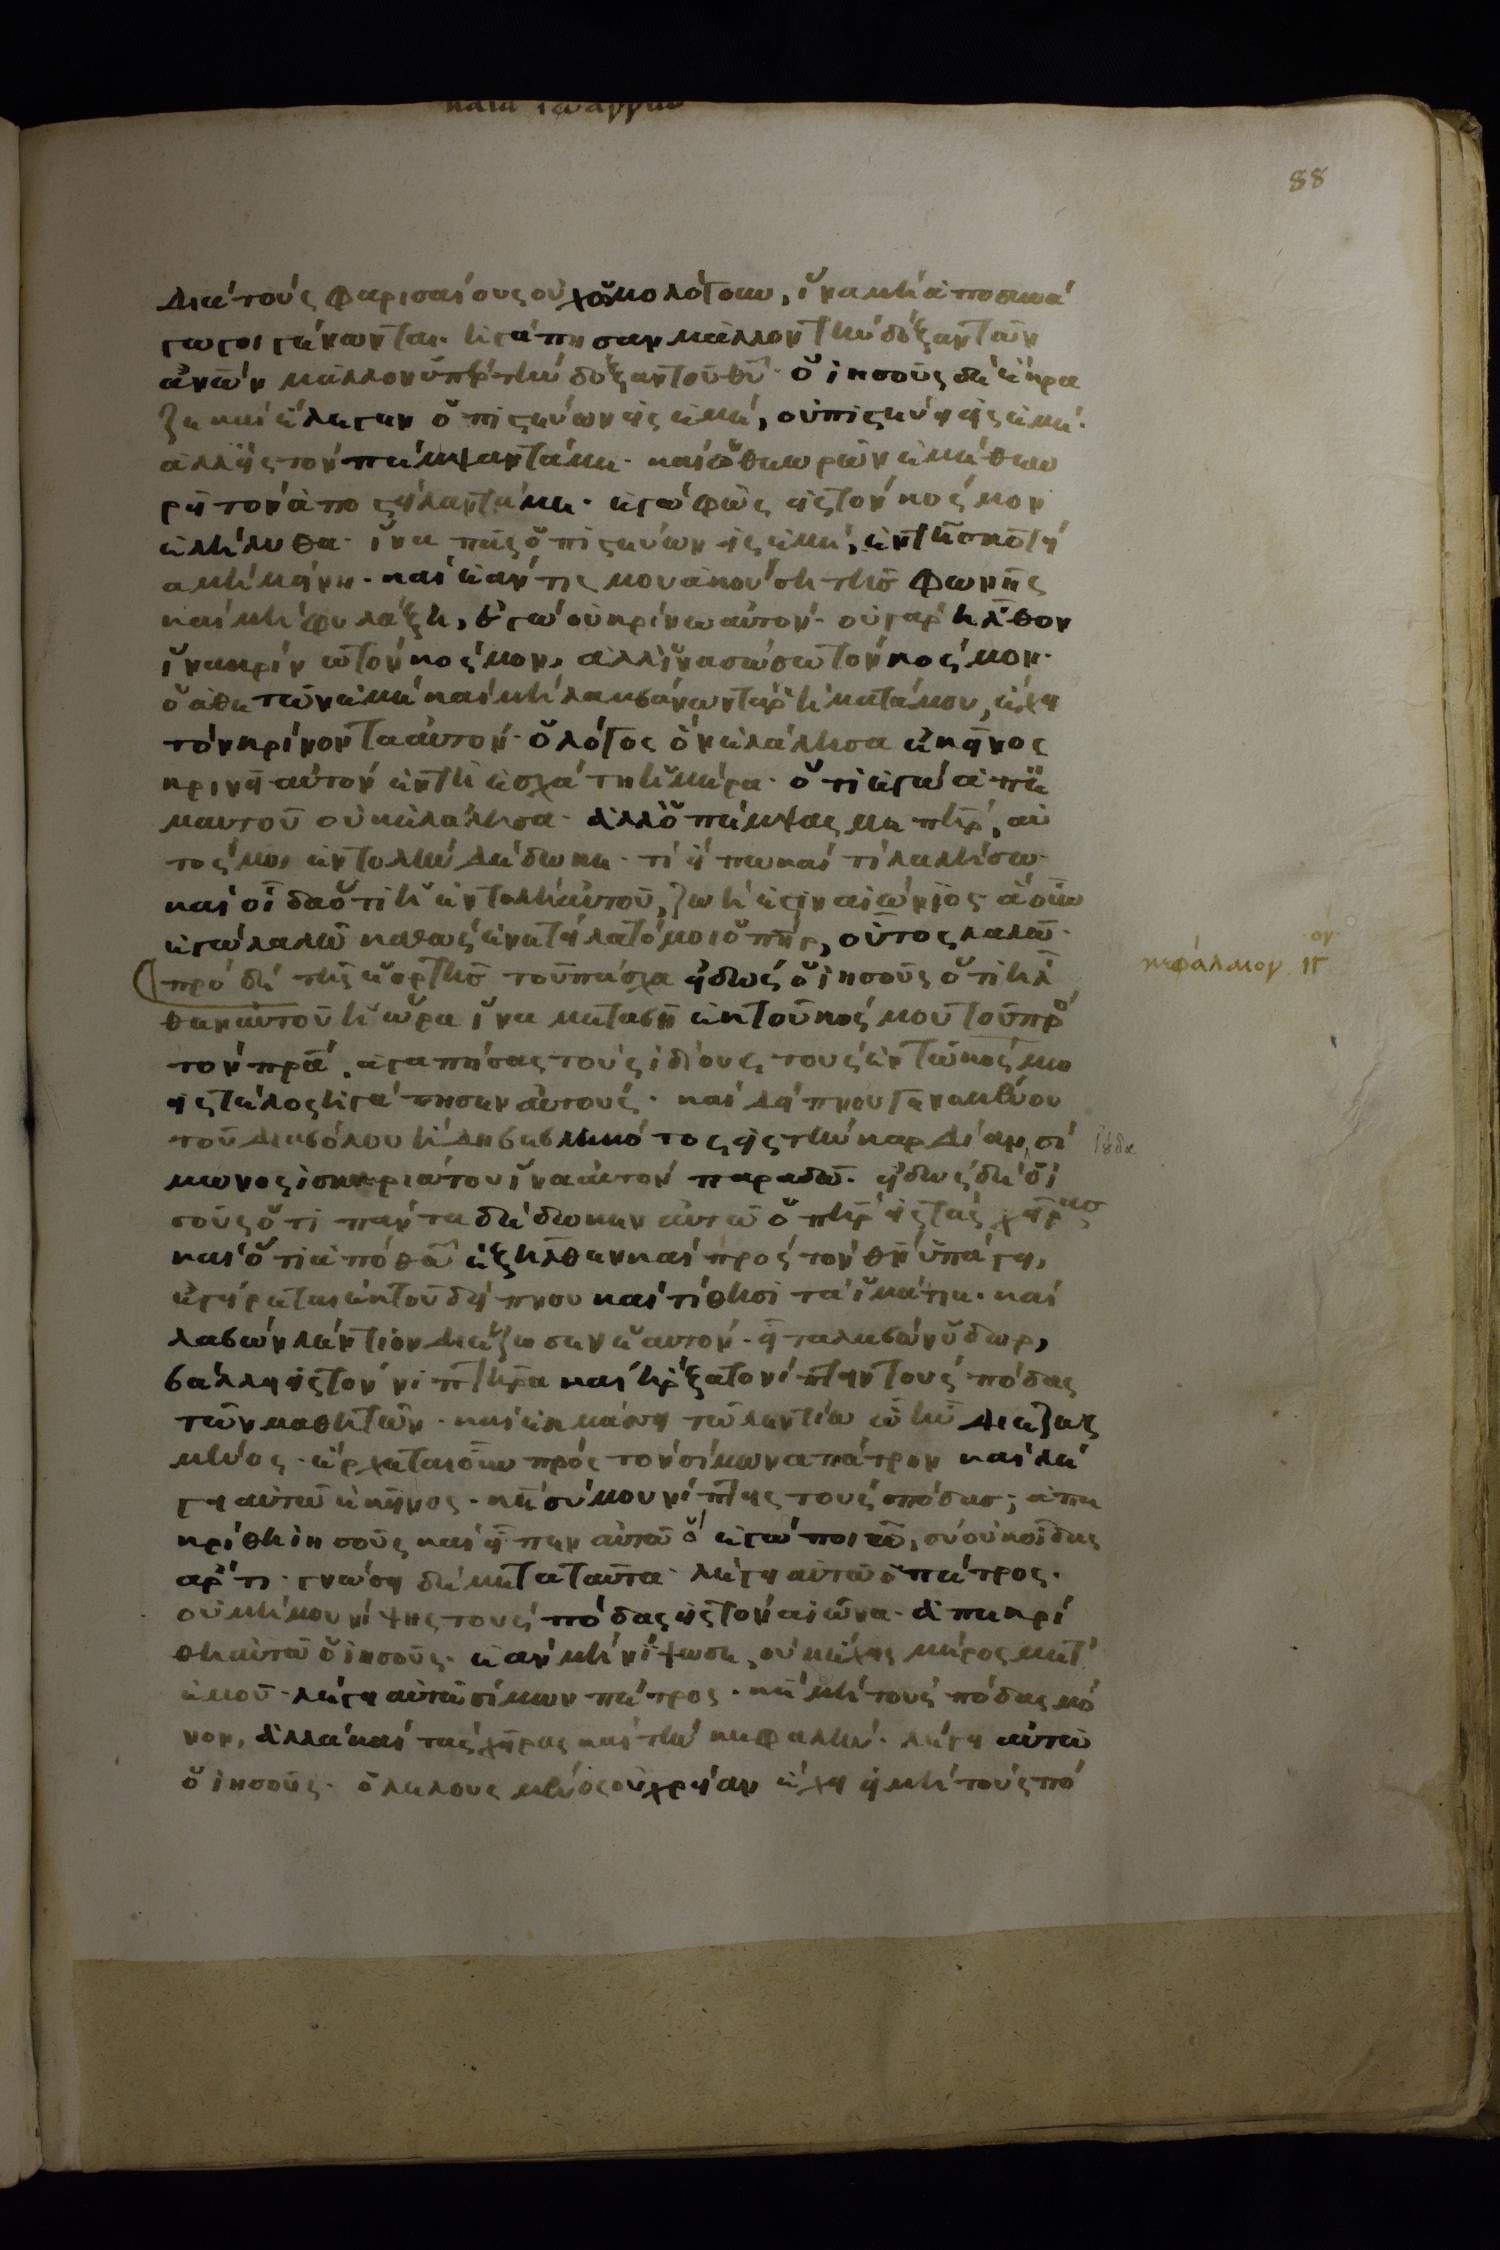 κατὰ ἰωάννην
88
διὰ τοὺς φαρισαίους οὐχ ὡμολόγουν, ἵνα μὴ ἀποσυνά
γωγοι γένωνται. ἠγάπησαν μᾶλλον τὴν δόξαν τῶν
ἀνῶν μᾶλλον ὑπὲρ τὴν δόξαν τοῦ θῦ. ὁ ἰησοῦς δὲ ἔκρα
ζε καὶ ἔλεγεν ὁ πιστεύων εἰς ἐμέ, οὐ πιστεύει εἰς ἐμέ.
ἀλλ' εἰς τὸν πέμψαντά με. καὶ ὁ θεωρῶν ἐμὲ θεω
ρεῖ τὸν ἀποστείλαντά με. ἐγὼ φῶς εἰς τὸν κόσμον
ἐλήλυθα. ἵνα πᾶς ὁ πιστεύων εἰς ἐμέ, ἐν τῇ σκοτεί
α μὴ μείνῃ. καὶ ἐάν τις μου ἀκούσῃ τῆς φωνῆς
καὶ μὴ φυλάξῃ, ἐγὼ οὐ κρίνω αὐτόν. οὐ γὰρ ἦλθον
ἵνα κρίνω τὸν κόσμον, ἀλλ' ἵνα σώσω τὸν κόσμον.
ὁ ἀθετῶν ἐμὲ καὶ μὴ λαμβάνων τὰ ῥήματά μου, ἔχει
τὸν κρίνοντα αὐτόν. ὁ λόγος ὃν ἐλάλησα ἐκεῖνος
κρινεῖ αὐτὸν ἐν τῇ ἐσχάτῃ ἡμέρα. ὅτι ἐγὼ ἀπ' ἐ
μαυτοῦ οὐκ ἐλάλησα. ἀλλ' ὁ πέμψας με πηρ, αὐ
τός μοι ἐντολὴν δέδωκε. τί εἴπω καὶ τί λαλήσω.
καὶ οἶδα ὅτι ἡ ἐντολὴ αὐτοῦ, ζωή ἐστιν αἰώνιος. ἃ οὖν
ἐγὼ λαλῶ καθὼς ἐνετείλατό μοι ὁ πηρ, οὕτος λαλῶ.
πρὸ δὲ τῆς ἑορτῆς τοῦ πάσχα εἰδὼς ὁ ἰησοῦς ὅτι ἦλ
θεν αὐτοῦ ἡ ὥρα ἵνα μεταβῇ ἐκ τοῦ κόσμου τοῦ πρὸ
τὸν πρα, ἀγαπήσας τοὺς ἰδίους, τοὺς ἐν τῷ κόσμω
εἰς τέλος ἠγάπησεν αὐτούς. καὶ δείπνου γενομένου
τοῦ διαβόλου ἤδη βεβληκότος εἰς τὴν καρδίαν, σί
μωνος ἰσκαριώτου ἵνα αὐτὸν παραδῶ. εἰδὼς δὲ ὁ ἰ
σοῦς ὅτι πάντα δέδωκεν αὐτῶ ὁ πηρ εἰς τὰς χεῖρας
καὶ ὅτι ἀπὸ θῦ ἐξῆλθεν καὶ πρὸς τὸν θν ὑπάγει,
ἐγείρεται ἐκ τοῦ δείπνου καὶ τίθησι τὰ ἱμάτια. καὶ
λαβὼν λέντιον διέζωσεν ἑαυτόν. εἶτα λαβὼν ὕδωρ,
βάλλει εἰς τὸν νιπτῆρα καὶ ἤρξατο νίπτειν τοὺς πόδας
τῶν μαθητῶν. καὶ ἐκμάσσει τῶ λεντίω ὧ ἦν διεζως
μένος. ἔρχεται οὖν πρὸς τὸν σίμωνα πέτρον καὶ λέ
γει αὐτῶ ἐκεῖνος. κε σύ μου νίπτεις τοὺς πόδας; ἀπε
κρίθη ἰησοῦς καὶ εἶπεν αὐτῶ ὃ ἐγὼ ποιῶ, σὺ οὐκ οἶδας
ἄρτι. γνώσει δὲ μετὰ ταῦτα. λέγει αὐτῶ ὁ πέτρος.
οὐ μή μου νίψῃς τοὺς πόδας εἰς τὸν αἰῶνα. ἀπεκρί
θη αὐτῶ ὁ ἰησοῦς. ἐὰν μὴ νίψω σε, οὐκ ἔχεις μέρος μετ'
ἐμοῦ. λέγει αὐτῶ σίμων πέτρος. κε μὴ τοὺς πόδας μό
νον, ἀλλὰ καὶ τὰς χεῖρας καὶ τὴν κεφαλήν. λέγει αὐτῶ
ὁ ἰησοῦς. ὁ λελουσμένος οὐ χρείαν ἔχει ἢ μὴ τοὺς πό
κεφάλαιον ιγ ον
ἰούδα